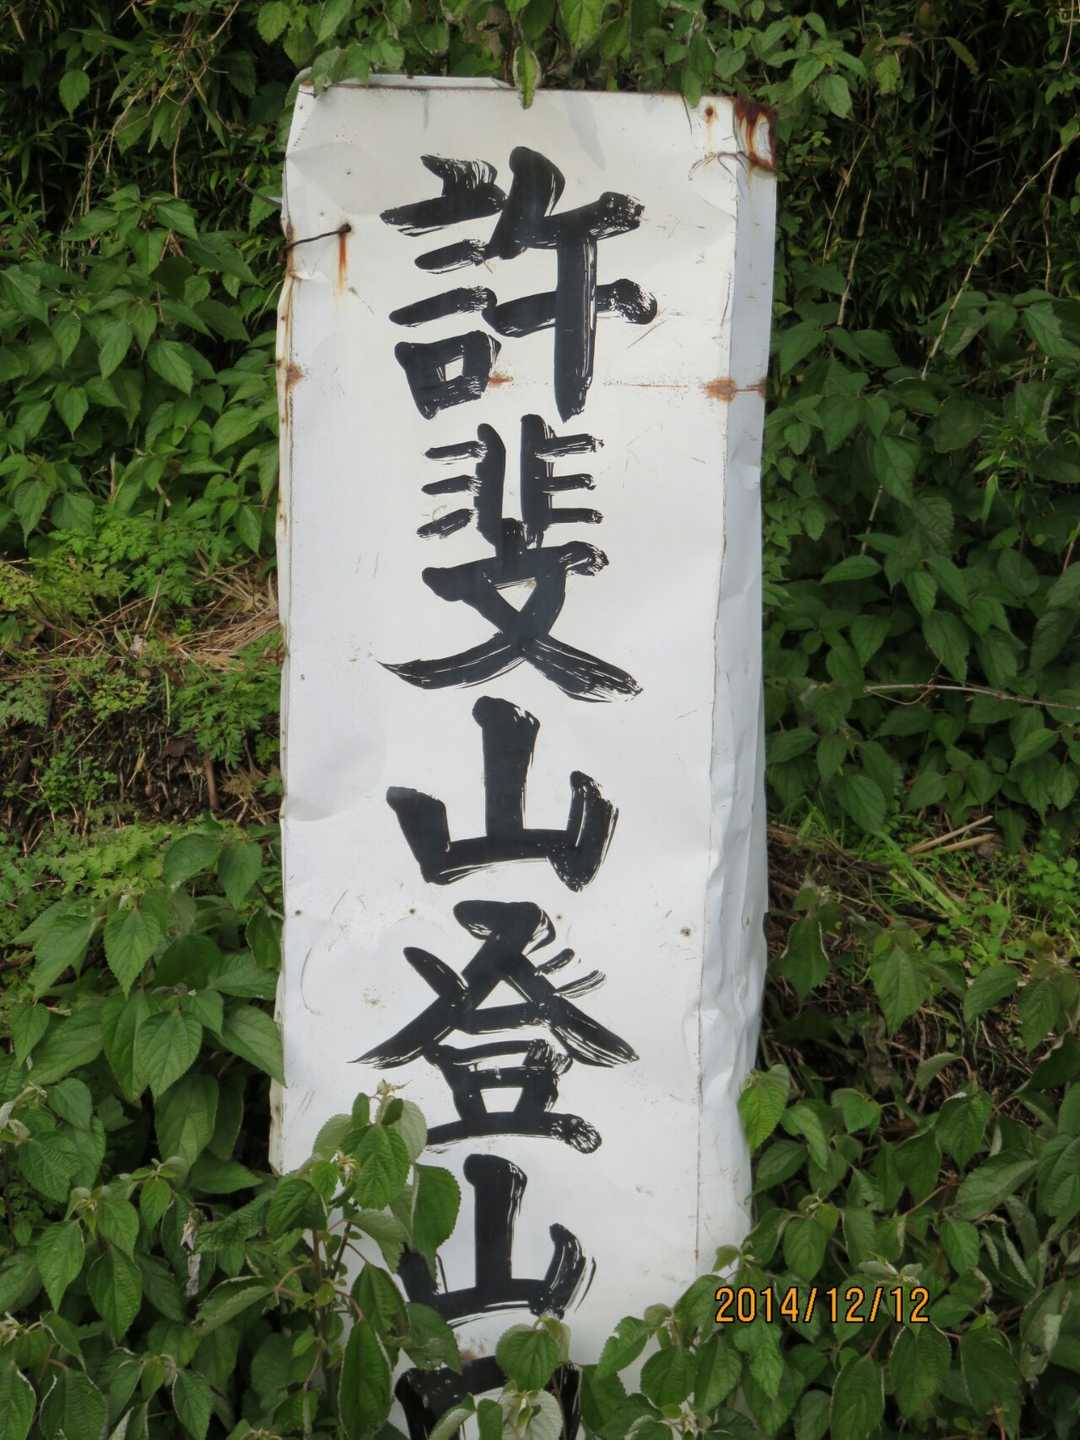 許斐山登山
2014/12/12